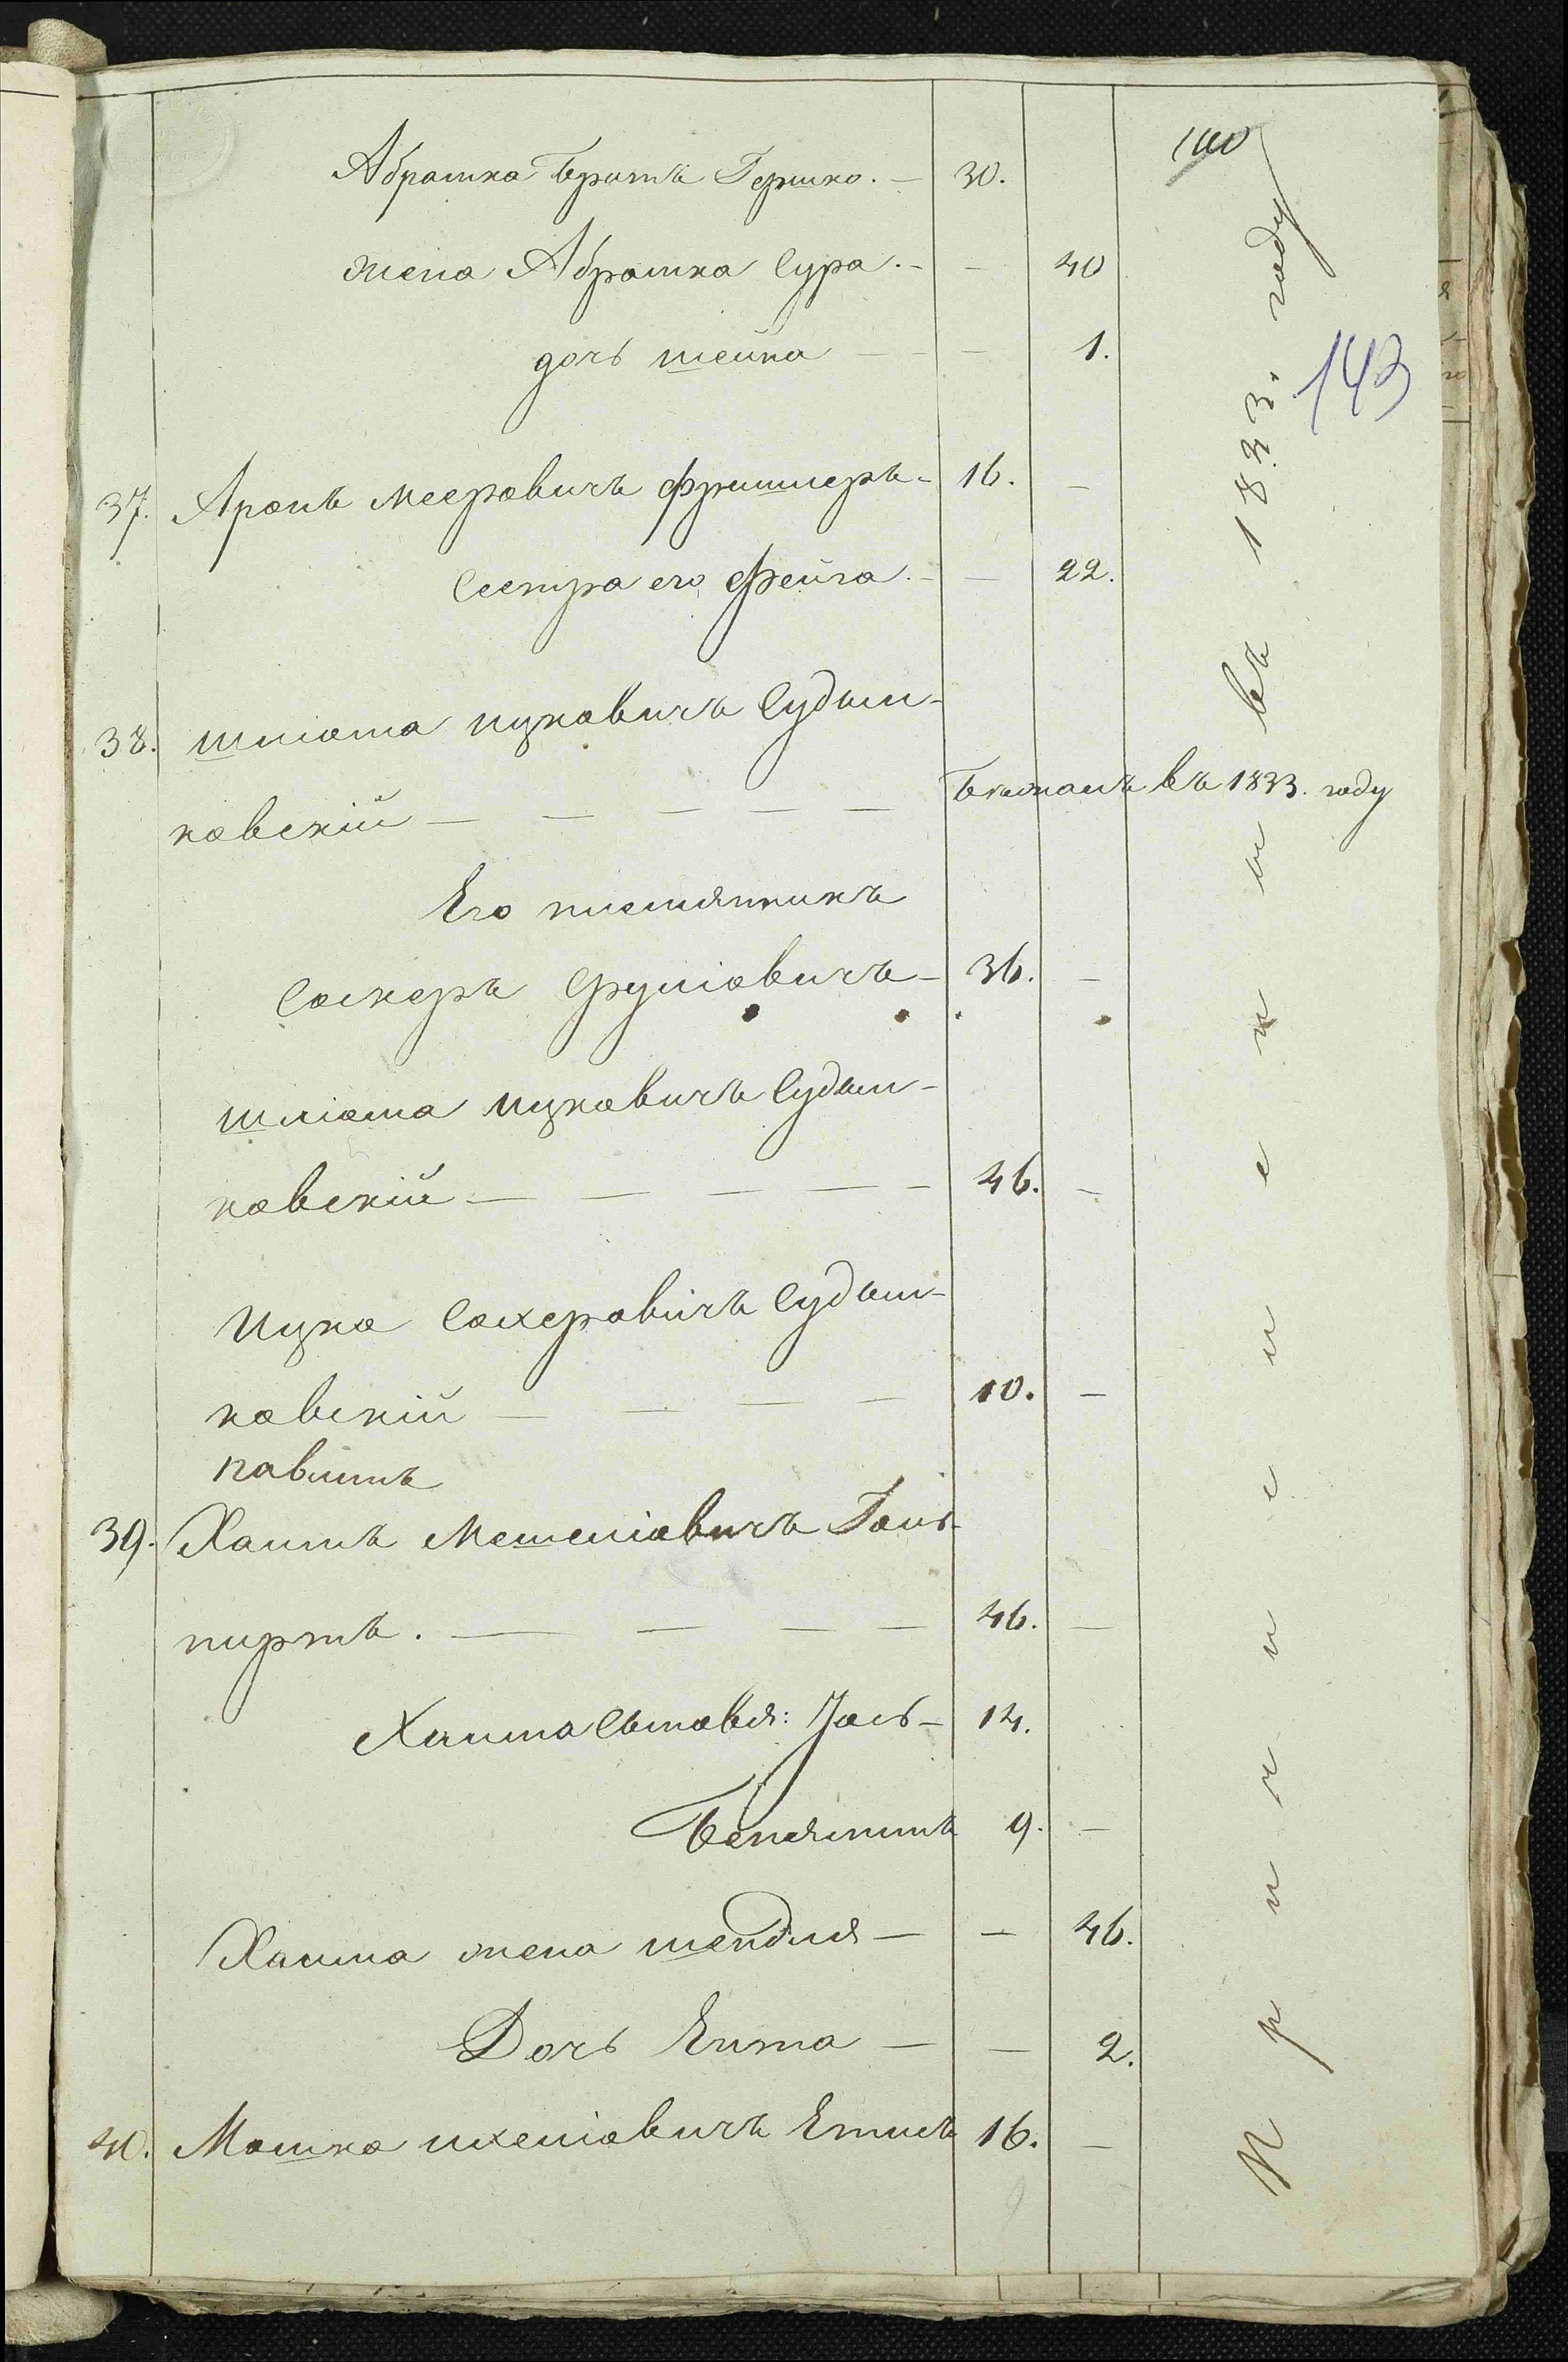 140
143
Абрамка братъ Гершко. — 30.
жена Абрамка Сура. — — 40
дочь шейна — — 1.
37. Аронъ мееровичъ фришлеръ — 16. —
Сестра его фейга. — — 22.
38. шліома ицковичъ Судыл-
ковскій — — — — Бежалъ въ 1833. году
Его племянникъ
Сохеръ Сруліовичъ — 36. —
шліома ицковичъ Судыл-
ковскій — — — — — 46. —
Ицко Сохеровичъ Судыл-
ковскій — — — — 10. —
39. Хаимъ Мешеліовичъ Галь-
пиртъ. — — — — 46. —
Хаима Сыновья: Іось — 14.
Беняминъ 9. —
Хаима жена шендля — — 46.
Дочь Ента — — 2.
40. Мошко ихеліовичъ 16. —
Причисленны въ 1833. году